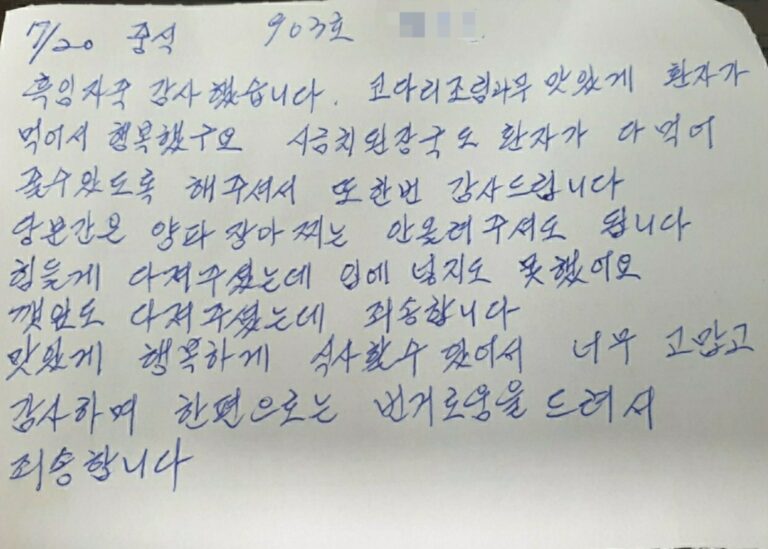 7/20 중식 903호
흑임자죽 감사했습니다. 코다리조림과무 맛있게 환자가
먹어서 행복했구요 시금치된장국도 환자가 다 먹어
줄수있도록 해주셔서 또한번 감사드립니다
당분간은 양파장아찌는 안올려주셔도 됩니다
힘들게 다져주셨는데 입에 넣지도 못했어요
깻잎도 다져주셨는데 죄송합니다
맛있게 행복하게 식사할수 있어서 너무 고맙고
감사하며 한편으로는 번거로움을 드려서
죄송합니다